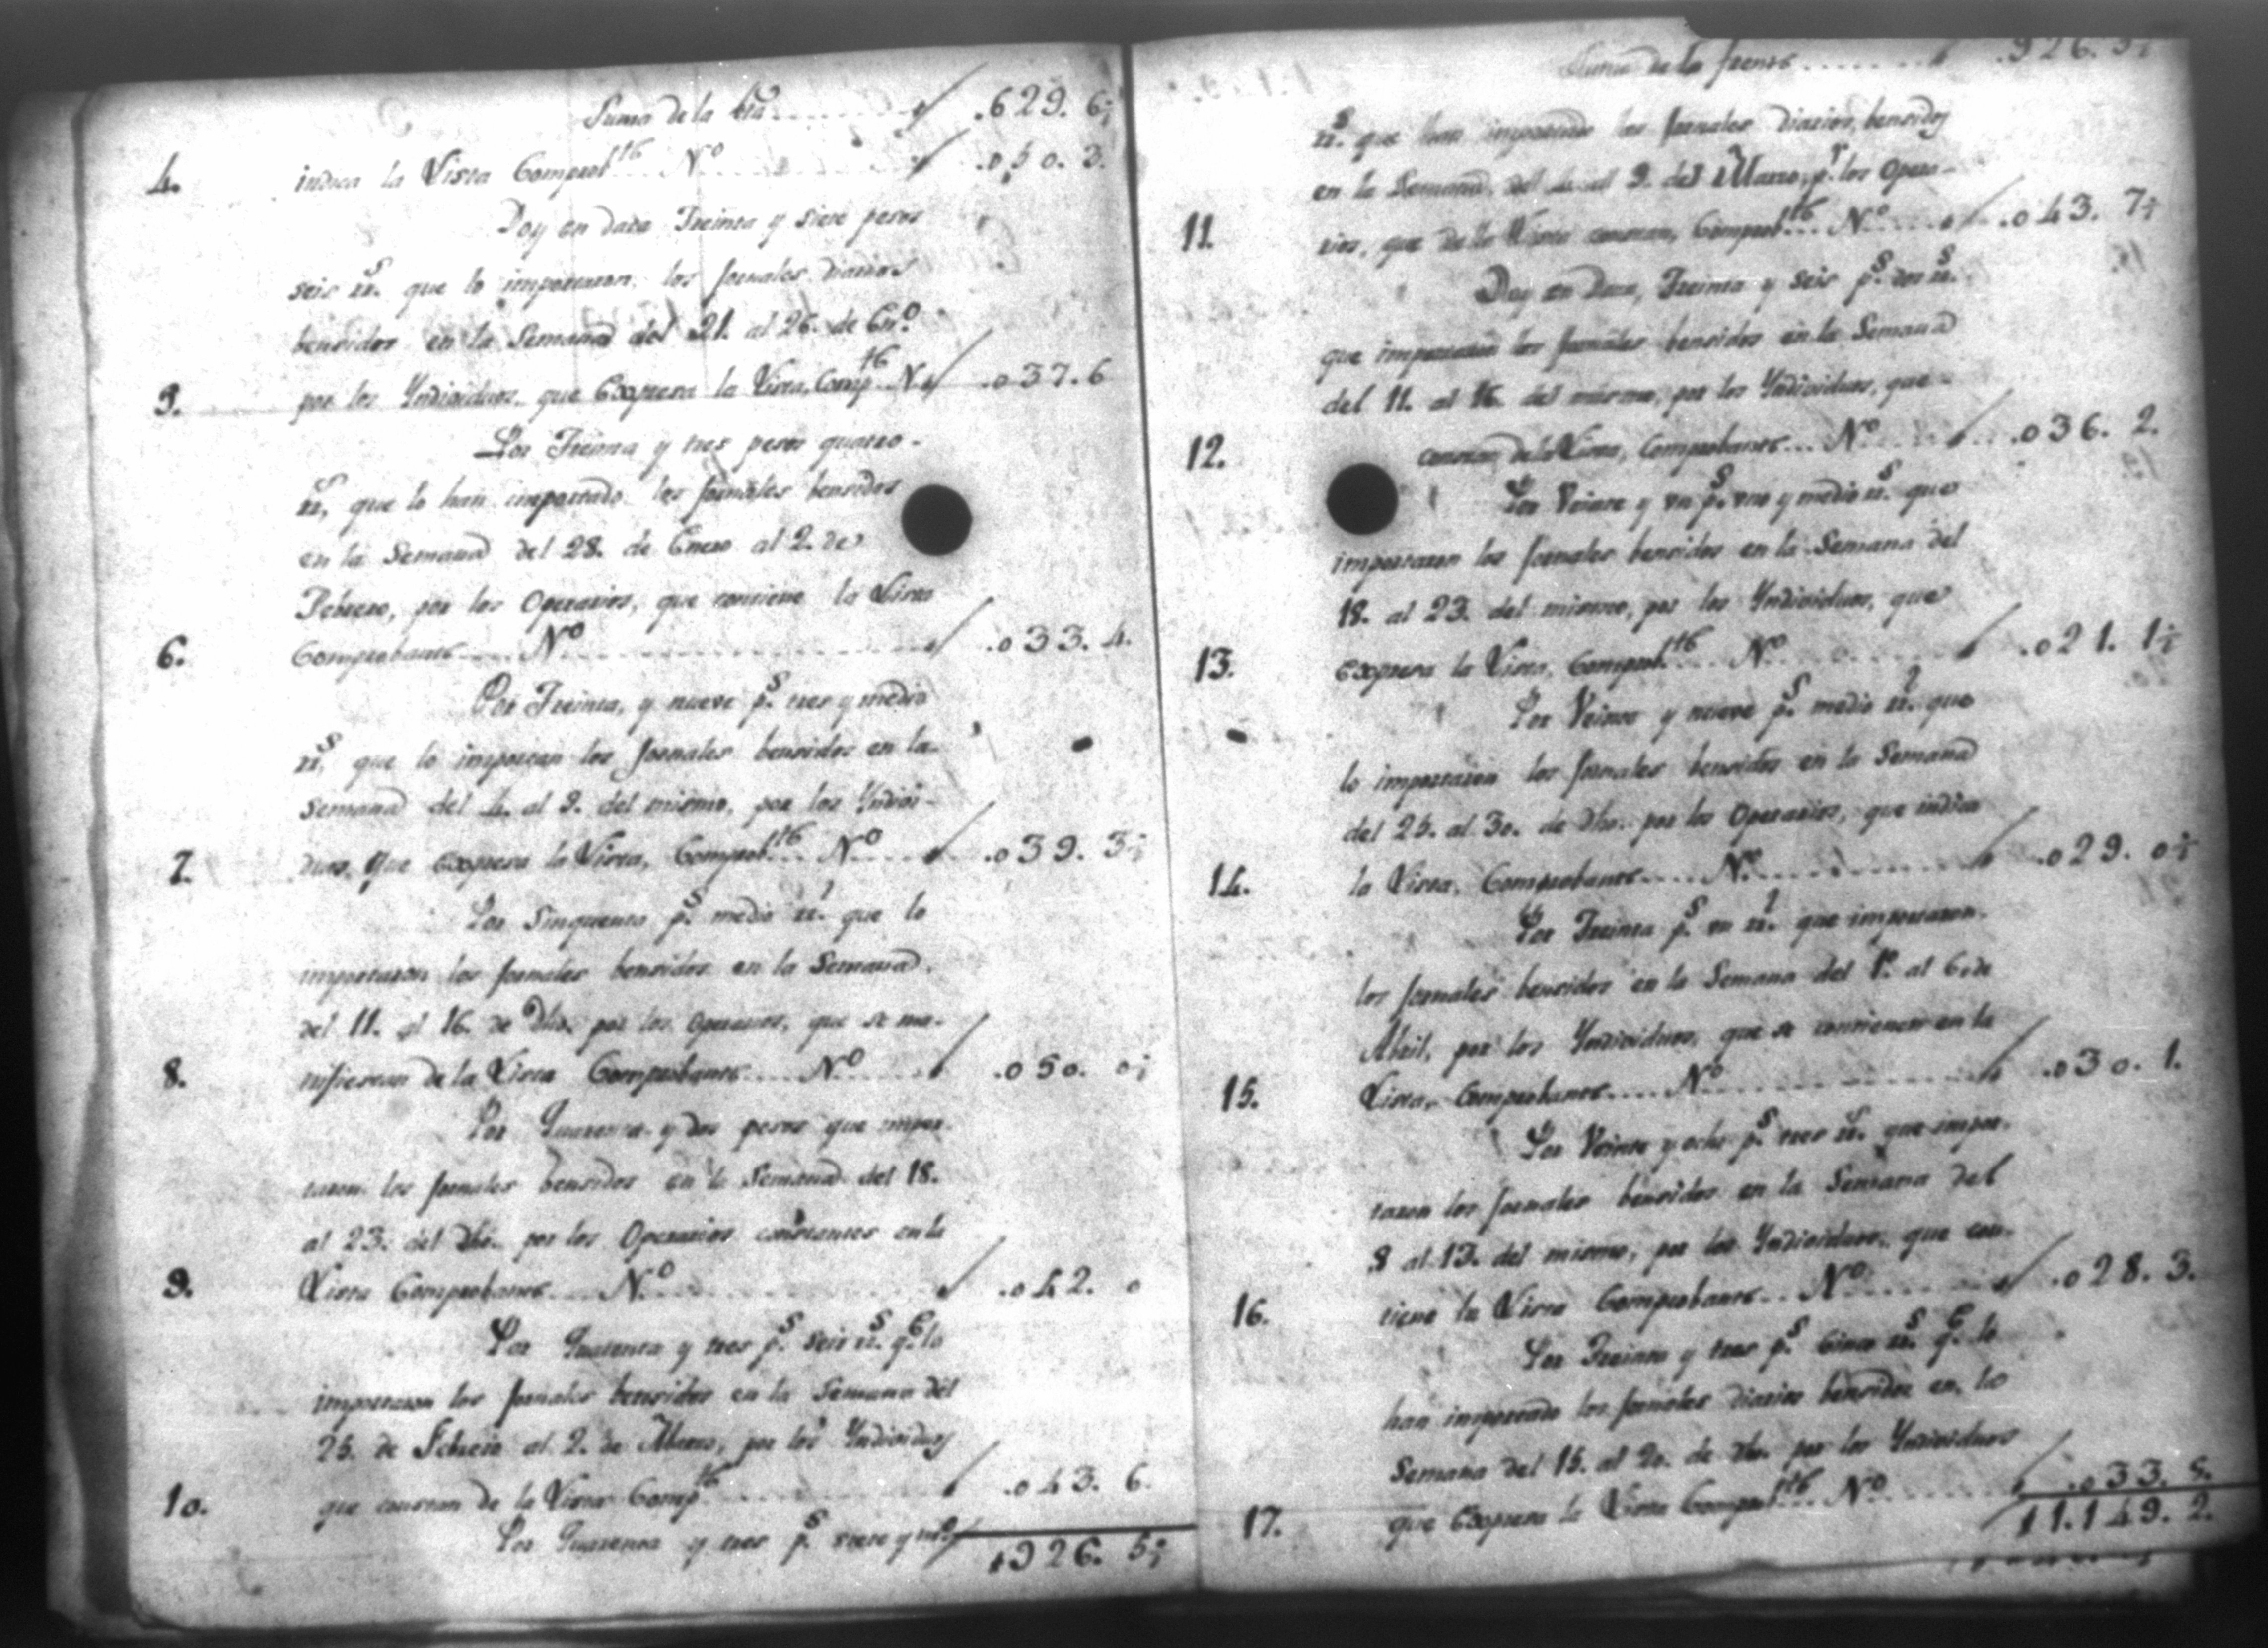 Suma de la bta........ .629. 6½
4. indica la Lista Comprob.te N.o ........ .050. 3.
Doy en data Treinta y siete pesos
seis rr.s que lo importaron, los jornales diarios
bensidos en la Semana del 21. al 26. de En.o
5. por los Yndividuos, que Expresa la Lista, Comp.te N.o .037.6
Por Treinta y tres pesos quatro
rr.s, que lo han importado los jornales bensidos
en la Semana del 28. de Enero al 2. de
Febrero, por los Operarios, que contiene la Lista
6. Comprobante.... N.o ........ .033.4.
Por Treinta, y nueve p.s tres y medio
rr.s que lo importan los jornales bensidos en la
Semana del 4. al 9. del mismo, por los Yndivi-
7. duos, que Expresa la Lista, Comprob.te... N.o .... .039. 3½
Por Sinquenta p.s medio rr.l que lo
importaron los jornales bensidos en la Semana
del 11. al 16. de dho. por los Operarios, que se ma-
8. nifiestan de la Lista Comprobante.... N.o .... .050. 0½
Por Quarenta y dos pesos que impor-
taron los jornales bensidos en la Semana del 18.
al 23. del dho. por los Operarios constantes en la
9. Lista Comprobante.... N.o ........ .042. 0
Por Quarenta y tres p.s seis rr.s q.e lo
importaron los jornales bensidos en la Semana del
25. de Febrero al 2. de Marzo, por los Yndividuos
10. que constan de la Lista Comp.te ........ .043. 6.
Por Quarenta y tres p.s siete y m.o
.926. 5½
Suma de la frente........ .926. 5½
rr.s que han importado los jornales diarios, bensidos
en la Semana, del 4. al 9. del Marzo, p.r los Opera-
11. rios, que de la Lista constan, Comprob.te... N.o .... .043. 7½
Doy en Data, Treinta y seis p.s dos rr.s
que importaron los jornales bensidos en la Semana
del 11. al 16. del mismo, por los Yndividuos, que
12. constan de la Lista, Comprobante... N.o .... .036. 2.
Por Veinte y un p.s uno y medio rr.s que
importaron los jornales bensidos en la Semana del
18. al 23. del mismo, por los Yndividuos, que
13. Expresa la Lista, Comprob.te... N.o .... .021. 1½
Por Veinte y nueve p.s medio rr.l que
lo importaron los jornales bensidos en la Semana
del 25. al 30. de dho. por los Operarios, que indica
14. la Lista, Comprobante.... N.o .... .029. 0½
Por Treinta p.s un rr.l que importaron
los jornales bensidos en la Semana del 1.o al 6. de
Abril, por los Yndividuos, que se contienen en la
15. Lista, Comprobante.... N.o .... .030. 1.
Por Veinte y ocho p.s tres rr.s que impor-
taron los jornales bensidos en la Semana del
8 al 13. del mismo, por los Yndividuos, que con-
16. tiene la Lista Comprobante... N.o .... .028. 3.
Por Treinta y tres p.s Cinco rr.s q.e lo
han importado los jornales diarios bensidos en la
Semana del 15. al 20. de dho. por los Yndividuos
17. que Expresa la Lista Comprob.te... N.o .... .033. 5.
11.149. 2.